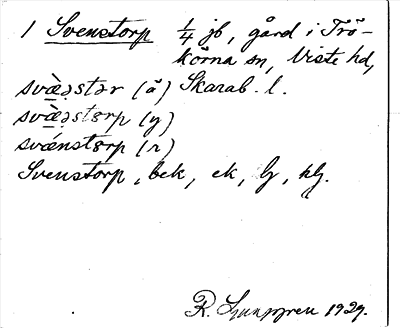 1 Svenstorp 1/4 jb, gård i Trö-
körna sn, Viste hd,
Skarab. l.
svæ̀ə̯stər (ä)
svæ̀ə̯stɵrp (y)
svǽnstɵrp (r)
Svenstorp, bek, ek, lj, hlj.
R. Ljunggren 1929.